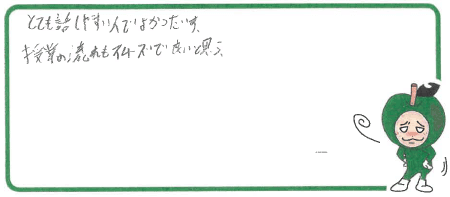 とても話しやすい人でよかったです。
授業の流れもスムーズで良いと思う。